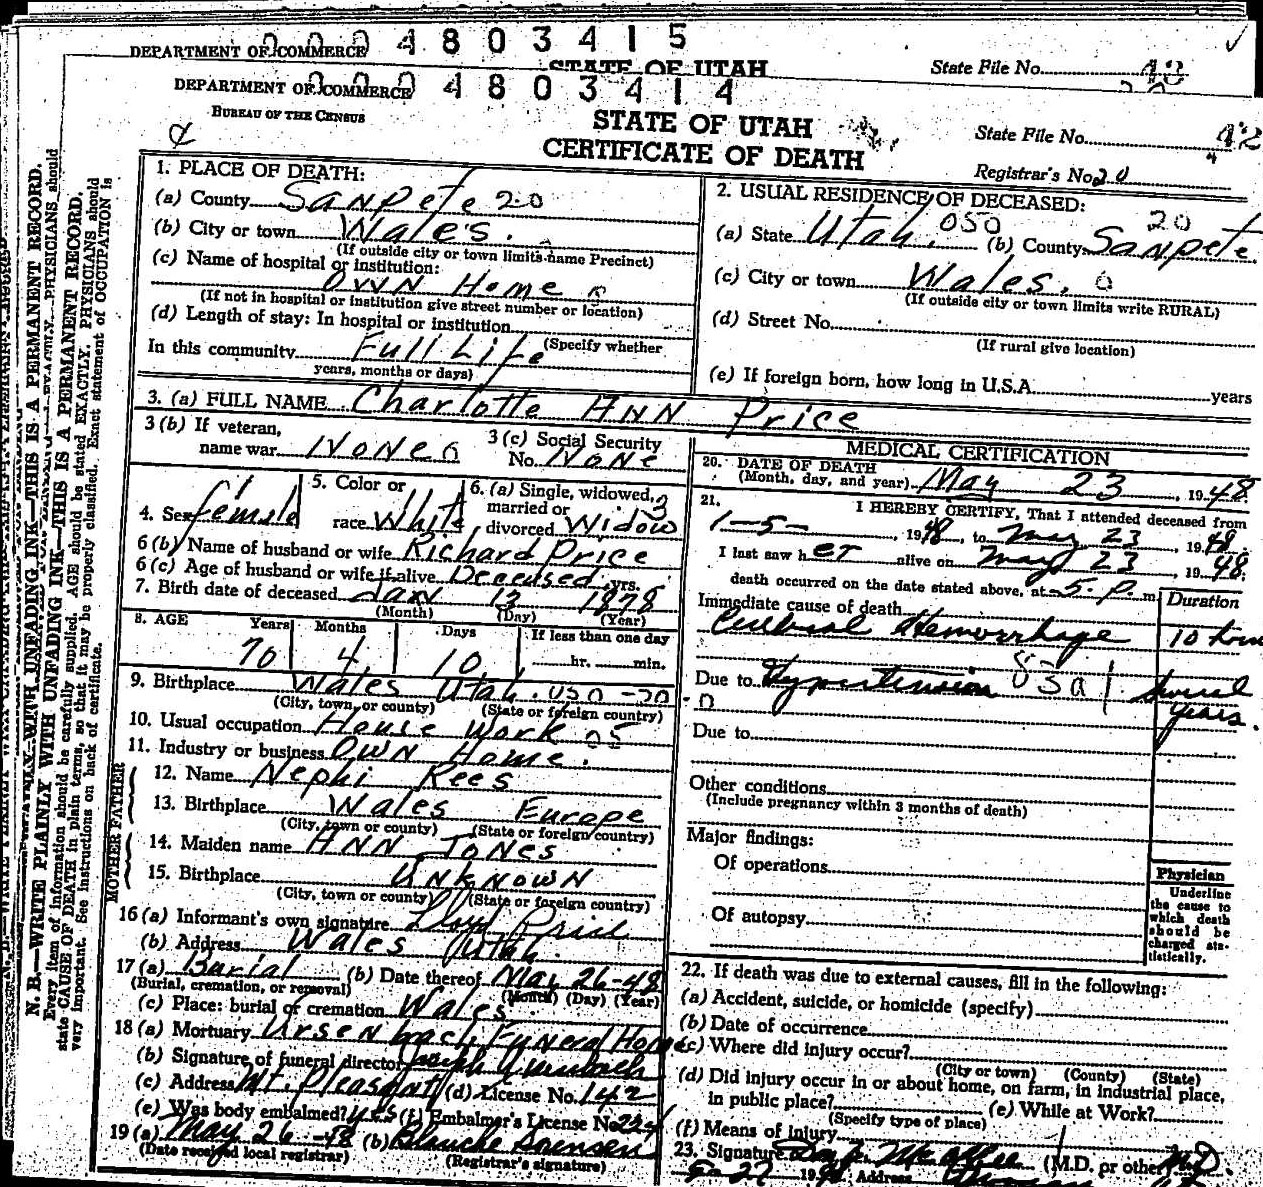 DEPARTMENT OF COMMERCE 4803415
STATE OF UTAH State File No.
DEPARTMENT OF COMMERCE 4803414
BUREAU OF THE CENSUS
STATE OF UTAH State File No. 42
CERTIFICATE OF DEATH
Registrar's No. 20
N. B.—WRITE PLAINLY WITH UNFADING INK—THIS IS A PERMANENT RECORD.
Every item of information should be carefully supplied. AGE should be stated EXACTLY. PHYSICIANS should
state CAUSE OF DEATH in plain terms, so that it may be properly classified. Exact statement of OCCUPATION is
very important. See instructions on back of certificate.
1. PLACE OF DEATH:
(a) County Sanpete 20
(b) City or town Wales.
(If outside city or town limits name Precinct)
(c) Name of hospital or institution:
OWN Home
(If not in hospital or institution give street number or location)
(d) Length of stay: In hospital or institution
(Specify whether
In this community Full Life
years, months or days)
2. USUAL RESIDENCE OF DECEASED:
050 20
(a) State Utah. (b) County Sanpete
(c) City or town Wales. 0
(If outside city or town limits write RURAL)
(d) Street No.
(If rural give location)
(e) If foreign born, how long in U.S.A. years
3. (a) FULL NAME Charlotte ANN Price
3 (b) If veteran,
name war NONe
3 (c) Social Security
No. NoNe
4. Sex female
5. Color or
race White
6. (a) Single, widowed,
married or
divorced Widow
6 (b) Name of husband or wife Richard Price
6 (c) Age of husband or wife if alive Deceased. yrs.
7. Birth date of deceased Jan 13 1878
(Month) (Day) (Year)
8. AGE Years Months Days If less than one day
70 4 10 hr. min.
9. Birthplace Wales Utah. 050-20
(City, town, or county) (State or foreign country)
10. Usual occupation House Work 05
11. Industry or business OWN Home.
FATHER
12. Name Nephi Rees
13. Birthplace Wales Europe
(City, town or county) (State or foreign country)
MOTHER
14. Maiden name ANN JoNes
15. Birthplace UNKNOWN
(City, town or county) (State or foreign country)
16 (a) Informant's own signature Lloyd Price
(b) Address Wales Utah.
17 (a) Burial (b) Date thereof May 26-48
(Burial, cremation, or removal) (Month) (Day) (Year)
(c) Place: burial or cremation Wales.
18 (a) Mortuary Ursenbach Funeral Home
(b) Signature of funeral director Joseph Ursenbach
(c) Address Mt. Pleasant (d) License No. 142
(e) Was body embalmed? yes (f) Embalmer's License No.
19 (a) May 26-48 (b) Blanche Sorensen
(Date received local registrar) (Registrar's signature)
MEDICAL CERTIFICATION
20. DATE OF DEATH
(Month, day, and year) May 23, 1948
21. I HEREBY CERTIFY, That I attended deceased from
1-5-, 1948, to May 23, 1948.
I last saw her alive on May 23, 1948.
death occurred on the date stated above, at 5. P. m.
Duration
Immediate cause of death
Cerebral Hemorrhage
Due to Hypertension 83a Several years.
Due to
Other conditions
(Include pregnancy within 3 months of death)
Major findings:
Of operations
Of autopsy
Physician
Underline
the cause to
which death
should be
charged sta-
tistically.
22. If death was due to external causes, fill in the following:
(a) Accident, suicide, or homicide (specify)
(b) Date of occurrence
(c) Where did injury occur?
(City or town) (County) (State)
(d) Did injury occur in or about home, on farm, in industrial place,
in public place? (e) While at Work?
(Specify type of place)
(f) Means of injury
23. Signature (M.D. or other) M.D.
5-27 1948 Address